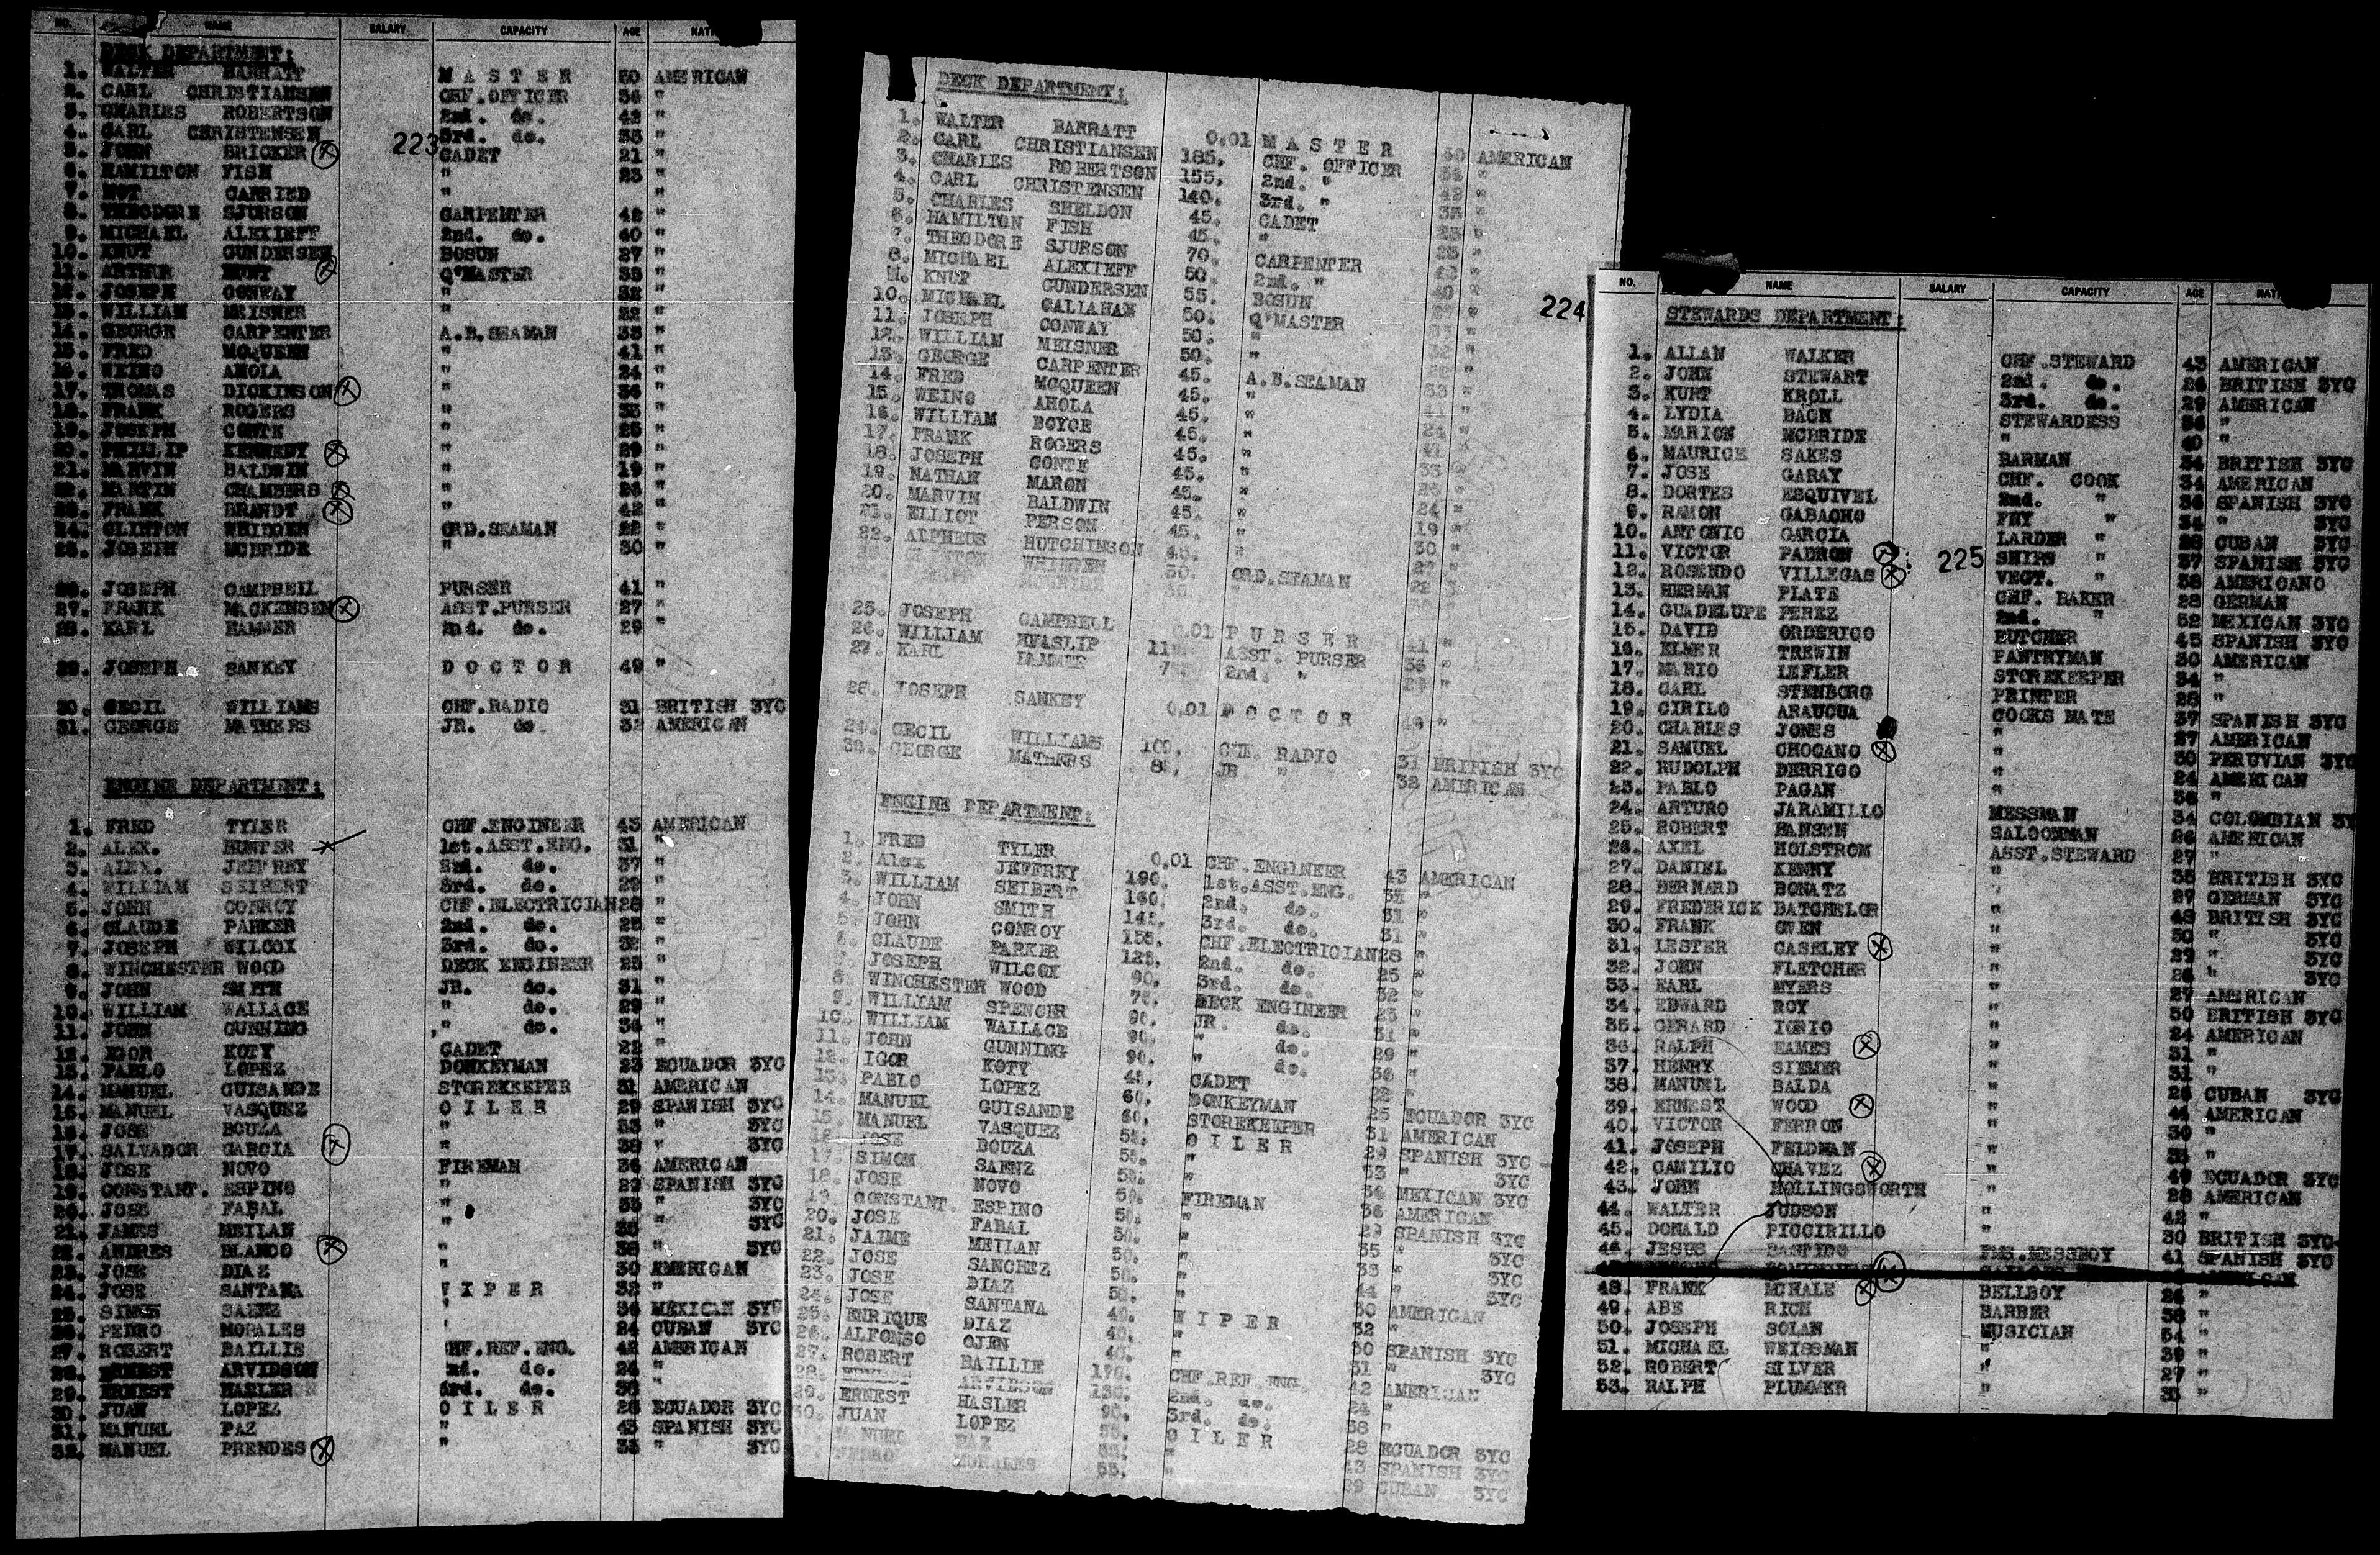 NO. NAME SALARY CAPACITY AGE
DECK DEPARTMENT:
1. WALTER BARRATT M A S T E R 50 AMERICAN
2. CARL CHRISTIANSEN CHF.OFFICER 36 "
3. CHARLES ROBERTSON 2nd. do. 42 "
4. CARL CHRISTENSEN 3rd. do. 35 "
223
5. JOHN BRICKER CADET 21 "
6. HAMILTON FISH " 23 "
7. NOT CARRIED "
8. THEODORE SJURSON CARPENTER 42 "
9. MICHAEL ALEXIEFF 2nd. do. 40 "
10. KNUT GUNDERSEN BOSUN 27 "
11. ARTHUR Q'MASTER 35 "
12. JOSEPH CONWAY " 32 "
13. WILLIAM MEISNER " 22 "
14. GEORGE CARPENTER A.B.SEAMAN 33 "
15. FRED MCQUEEN " 41 "
16. WEINO AHOLA " 24 "
17. THOMAS DICKINSON " 36 "
18. FRANK ROGERS " 33 "
19. JOSEPH CONTE " 25 "
20. PHILLIP KENNEDY " 29 "
21. MARVIN BALDWIN " 19 "
22. MARTIN CHAMBERS " 26 "
23. FRANK BRANDT " 42 "
24. CLINTON WHIDDEN ORD.SEAMAN 22 "
25. JOSEPH MCBRIDE " 30 "
26. JOSEPH CAMPBELL PURSER 41 "
27. FRANK MACKENSEN ASST.PURSER 27 "
28. KARL HAMMER 2nd. do. 29 "
29. JOSEPH SANKEY D O C T O R 49 "
30. CECIL WILLIAMS CHF.RADIO 31 BRITISH 3YC
31. GEORGE MATHERS JR. do. 32 AMERICAN
ENGINE DEPARTMENT:
1. FRED TYLER CHF.ENGINEER 43 AMERICAN
2. ALEX. HUNTER 1st.ASST.ENG. 31 "
3. ALEX. JEFFREY 2nd. do. 37 "
4. WILLIAM SEIBERT 3rd. do. 29 "
5. JOHN CONROY CHF.ELECTRICIAN 28 "
6. CLAUDE PARKER 2nd. do. 25 "
7. JOSEPH WILCOX 3rd. do. 32 "
8. WINCHESTER WOOD DECK ENGINEER 23 "
9. JOHN SMITH JR. do. 31 "
10. WILLIAM WALLACE " do. 29 "
11. JOHN GUNNING " do. 36 "
12. IGOR KOTY CADET 22 "
13. PABLO LOPEZ DONKEYMAN 23 ECUADOR 3YC
14. MANUEL GUISANDE STOREKEEPER 31 AMERICAN
15. MANUEL VASQUEZ O I L E R 29 SPANISH 3YC
16. JOSE BOUZA " 53 " 3YC
17. SALVADOR GARCIA " 38 " 3YC
18. JOSE NOVO FIREMAN 36 AMERICAN
19. CONSTANT. ESPINO " 29 SPANISH 3YC
20. JOSE FABAL " 35 " 3YC
21. JAMES MEILAN " 35 " 3YC
22. ANDRES BLANCO " 38 " 3YC
23. JOSE DIAZ " 30 AMERICAN
24. JOSE SANTANA W I P E R 32 "
25. SIMON SAENZ 36 MEXICAN 3YC
26. PEDRO MORALES 24 CUBAN 3YC
27. ROBERT BAILLIE CHF.REF.ENG. 42 AMERICAN
28. ERNEST ARVIDSON 2nd. do. 24 "
29. ERNEST HASLER 3rd. do. 38 "
30. JUAN LOPEZ O I L E R 28 ECUADOR 3YC
31. MANUEL PAZ " 43 SPANISH 3YC
32. MANUEL PRENDES " 33 " 3YC
DECK DEPARTMENT:
1. WALTER BARRATT 0.01 M A S T E R 50 AMERICAN
2. CARL CHRISTIANSEN 185. CHF. OFFICER 36 "
3. CHARLES ROBERTSON 155. 2nd. " 42 "
4. CARL CHRISTENSEN 140. 3rd. " 35 "
5. CHARLES SHELDON 45. CADET 23 "
6. HAMILTON FISH 45. " 23 "
7. THEODORE SJURSON 70. CARPENTER 42 "
8. MICHAEL ALEXIEFF 50. 2nd. " 40 "
9. KNUT GUNDERSEN 55. BOSUN 27 "
10. MICHAEL CALLAHAN 50. Q'MASTER 33 "
224
11. JOSEPH CONWAY 50. " 32 "
12. WILLIAM MEISNER 50. " 22 "
13. GEORGE CARPENTER 45. A.B.SEAMAN 33 "
14. FRED MCQUEEN 45. " 41 "
15. WEINO AHOLA 45. " 24 "
16. WILLIAM BOYCE 45. " 41 "
17. FRANK ROGERS 45. " 33 "
18. JOSEPH CONTE 45. " 25 "
19. NATHAN MARON 45. " 24 "
20. MARVIN BALDWIN 45. " 19 "
21. ELLIOT PERSON 45. " 30 "
22. ALPHEUS HUTCHINSON 45. " 27 "
23. CLINTON WHIDDEN 30. ORD.SEAMAN 22 "
24. JOSEPH MCBRIDE 30. "
25. JOSEPH CAMPBELL 0.01 P U R S E R 41 "
26. WILLIAM HEASLIP ASST. PURSER 36 "
27. KARL HAMMER 2nd. " 29 "
28. JOSEPH SANKEY 0.01 D O C T O R 49 "
29. CECIL WILLIAMS 100. CHF. RADIO 31 BRITISH 3YC
30. GEORGE MATHERS JR. " 32 AMERICAN
ENGINE DEPARTMENT:
1. FRED TYLER 0.01 CHF.ENGINEER 43 AMERICAN
2. Alex JEFFREY 190. 1st.ASST.ENG. "
3. WILLIAM SEIBERT 160. 2nd. do. 31 "
4. JOHN SMITH 145. 3rd. do. 31 "
5. JOHN CONROY 155. CHF.ELECTRICIAN 28 "
6. CLAUDE PARKER 125. 2nd. do. 25 "
7. JOSEPH WILCOX 90. 3rd. do. 32 "
8. WINCHESTER WOOD 75. DECK ENGINEER 23 "
9. WILLIAM SPENCER 90. JR. do. 31 "
10. WILLIAM WALLACE 90. " do. 29 "
11. JOHN GUNNING 90. " do. 36 "
12. IGOR KOTY 45. CADET 22 "
13. PABLO LOPEZ 60. DONKEYMAN 23 ECUADOR 3YC
14. MANUEL GUISANDE 60. STOREKEEPER 31 AMERICAN
15. MANUEL VASQUEZ 55. O I L E R 29 SPANISH 3YC
16. JOSE BOUZA 55. " 53 " 3YC
17. SIMON SAENZ 55. " 36 MEXICAN 3YC
18. JOSE NOVO 50. FIREMAN 36 AMERICAN
19. CONSTANT. ESPINO 50. " 29 SPANISH 3YC
20. JOSE FABAL 50. " 35 " 3YC
21. JAIME MEILAN 50. " 33 " 3YC
22. JOSE SANCHEZ 50. " 44 " 3YC
23. JOSE DIAZ 50. " 30 AMERICAN
24. JOSE SANTANA 40. W I P E R 32 "
25. ENRIQUE DIAZ 40. " 30 SPANISH 3YC
26. ALFONSO OJEN 40. " 31 " 3YC
27. ROBERT BAILLIE 170. CHF.REF.ENG. 42 AMERICAN
28. ARVIDSON 130. 2nd. do. 24 "
29. ERNEST HASLER 90. 3rd. do. 38 "
30. JUAN LOPEZ 55. O I L E R 28 ECUADOR 3YC
MANUEL PAZ 55. " 43 SPANISH 3YC
PEDRO MORALES 55. " 29 CUBAN 3YC
NO. NAME SALARY CAPACITY AGE
STEWARDS DEPARTMENT:
1. ALLAN WALKER CHF.STEWARD 43 AMERICAN
2. JOHN STEWART 2nd. do. 26 BRITISH 3YC
3. KURT KROLL 3rd. do. 29 AMERICAN
4. LYDIA BACH STEWARDESS 36 "
5. MARION MCBRIDE " 40 "
6. MAURICE SAKES BARMAN 34 BRITISH 3YC
7. JOSE GARAY CHF. COOK 34 AMERICAN
8. DORTES ESQUIVEL 2nd. " 36 SPANISH 3YC
9. RAMON GABACHO FRY " 34 " 3YC
10. ANTONIO GARCIA LARDER " 28 CUBAN 3YC
11. VICTOR PADRON SHIPS " 37 SPANISH 3YC
225
12. ROSENDO VILLEGAS VEGT. " 38 AMERICANO
13. HERMAN PLATE CHF. BAKER 28 GERMAN
14. GUADELUPE PEREZ 2nd. " 52 MEXICAN 3YC
15. DAVID ORDERICO BUTCHER 45 SPANISH 3YC
16. ELMER TREWIN PANTRYMAN 30 AMERICAN
17. MARIO LEFLER STOREKEEPER 34 "
18. CARL STENBORG PRINTER 28 "
19. CIRILO ARAUCUA COOKS MATE 37 SPANISH 3YC
20. CHARLES JONES " 27 AMERICAN
21. SAMUEL CHOCANO " 30 PERUVIAN 3YC
22. RUDOLPH DERRICO " 24 AMERICAN
23. PABLO PAGAN " 36 "
24. ARTURO JARAMILLO MESSMAN 34 COLOMBIAN 3Y
25. ROBERT HANSEN SALOONMAN 26 AMERICAN
26. AXEL HOLSTROM ASST.STEWARD 27 "
27. DANIEL KENNY " 35 BRITISH 3YC
28. BERNARD BONATZ " 27 GERMAN 3YC
29. FREDERICK BATCHELOR " 48 BRITISH 3YC
30. FRANK OWEN " 50 " 3YC
31. LESTER CASELEY " 29 " 3YC
32. JOHN FLETCHER " 26 " 3YC
33. EARL MYERS " 27 AMERICAN
34. EDWARD ROY " 50 BRITISH 3YC
35. GERARD IORIO " 24 AMERICAN
36. RALPH EAMES " 31 "
37. HENRY SIEMER " 31 "
38. MANUEL BALDA " 26 CUBAN 3YC
39. ERNEST WOOD " 44 AMERICAN
40. VICTOR FERRON " 30 "
41. JOSEPH FELDMAN " 35 "
42. CAMILIO CHAVEZ " 49 ECUADOR 3YC
43. JOHN HOLLINGSWORTH " 28 AMERICAN
44. WALTER JUDSON " 42 "
45. DONALD PICCIRILLO " 30 BRITISH 3YC
46. JESUS PMS.MESSBOY 41 SPANISH 3YC
48. FRANK MCHALE BELLBOY 26 "
49. ABE RICH BARBER 38 "
50. JOSEPH SOLAN MUSICIAN 54 "
51. MICHAEL WEISSMAN " 39 "
52. ROBERT SILVER " 27 "
53. RALPH PLUMMER " 35 "